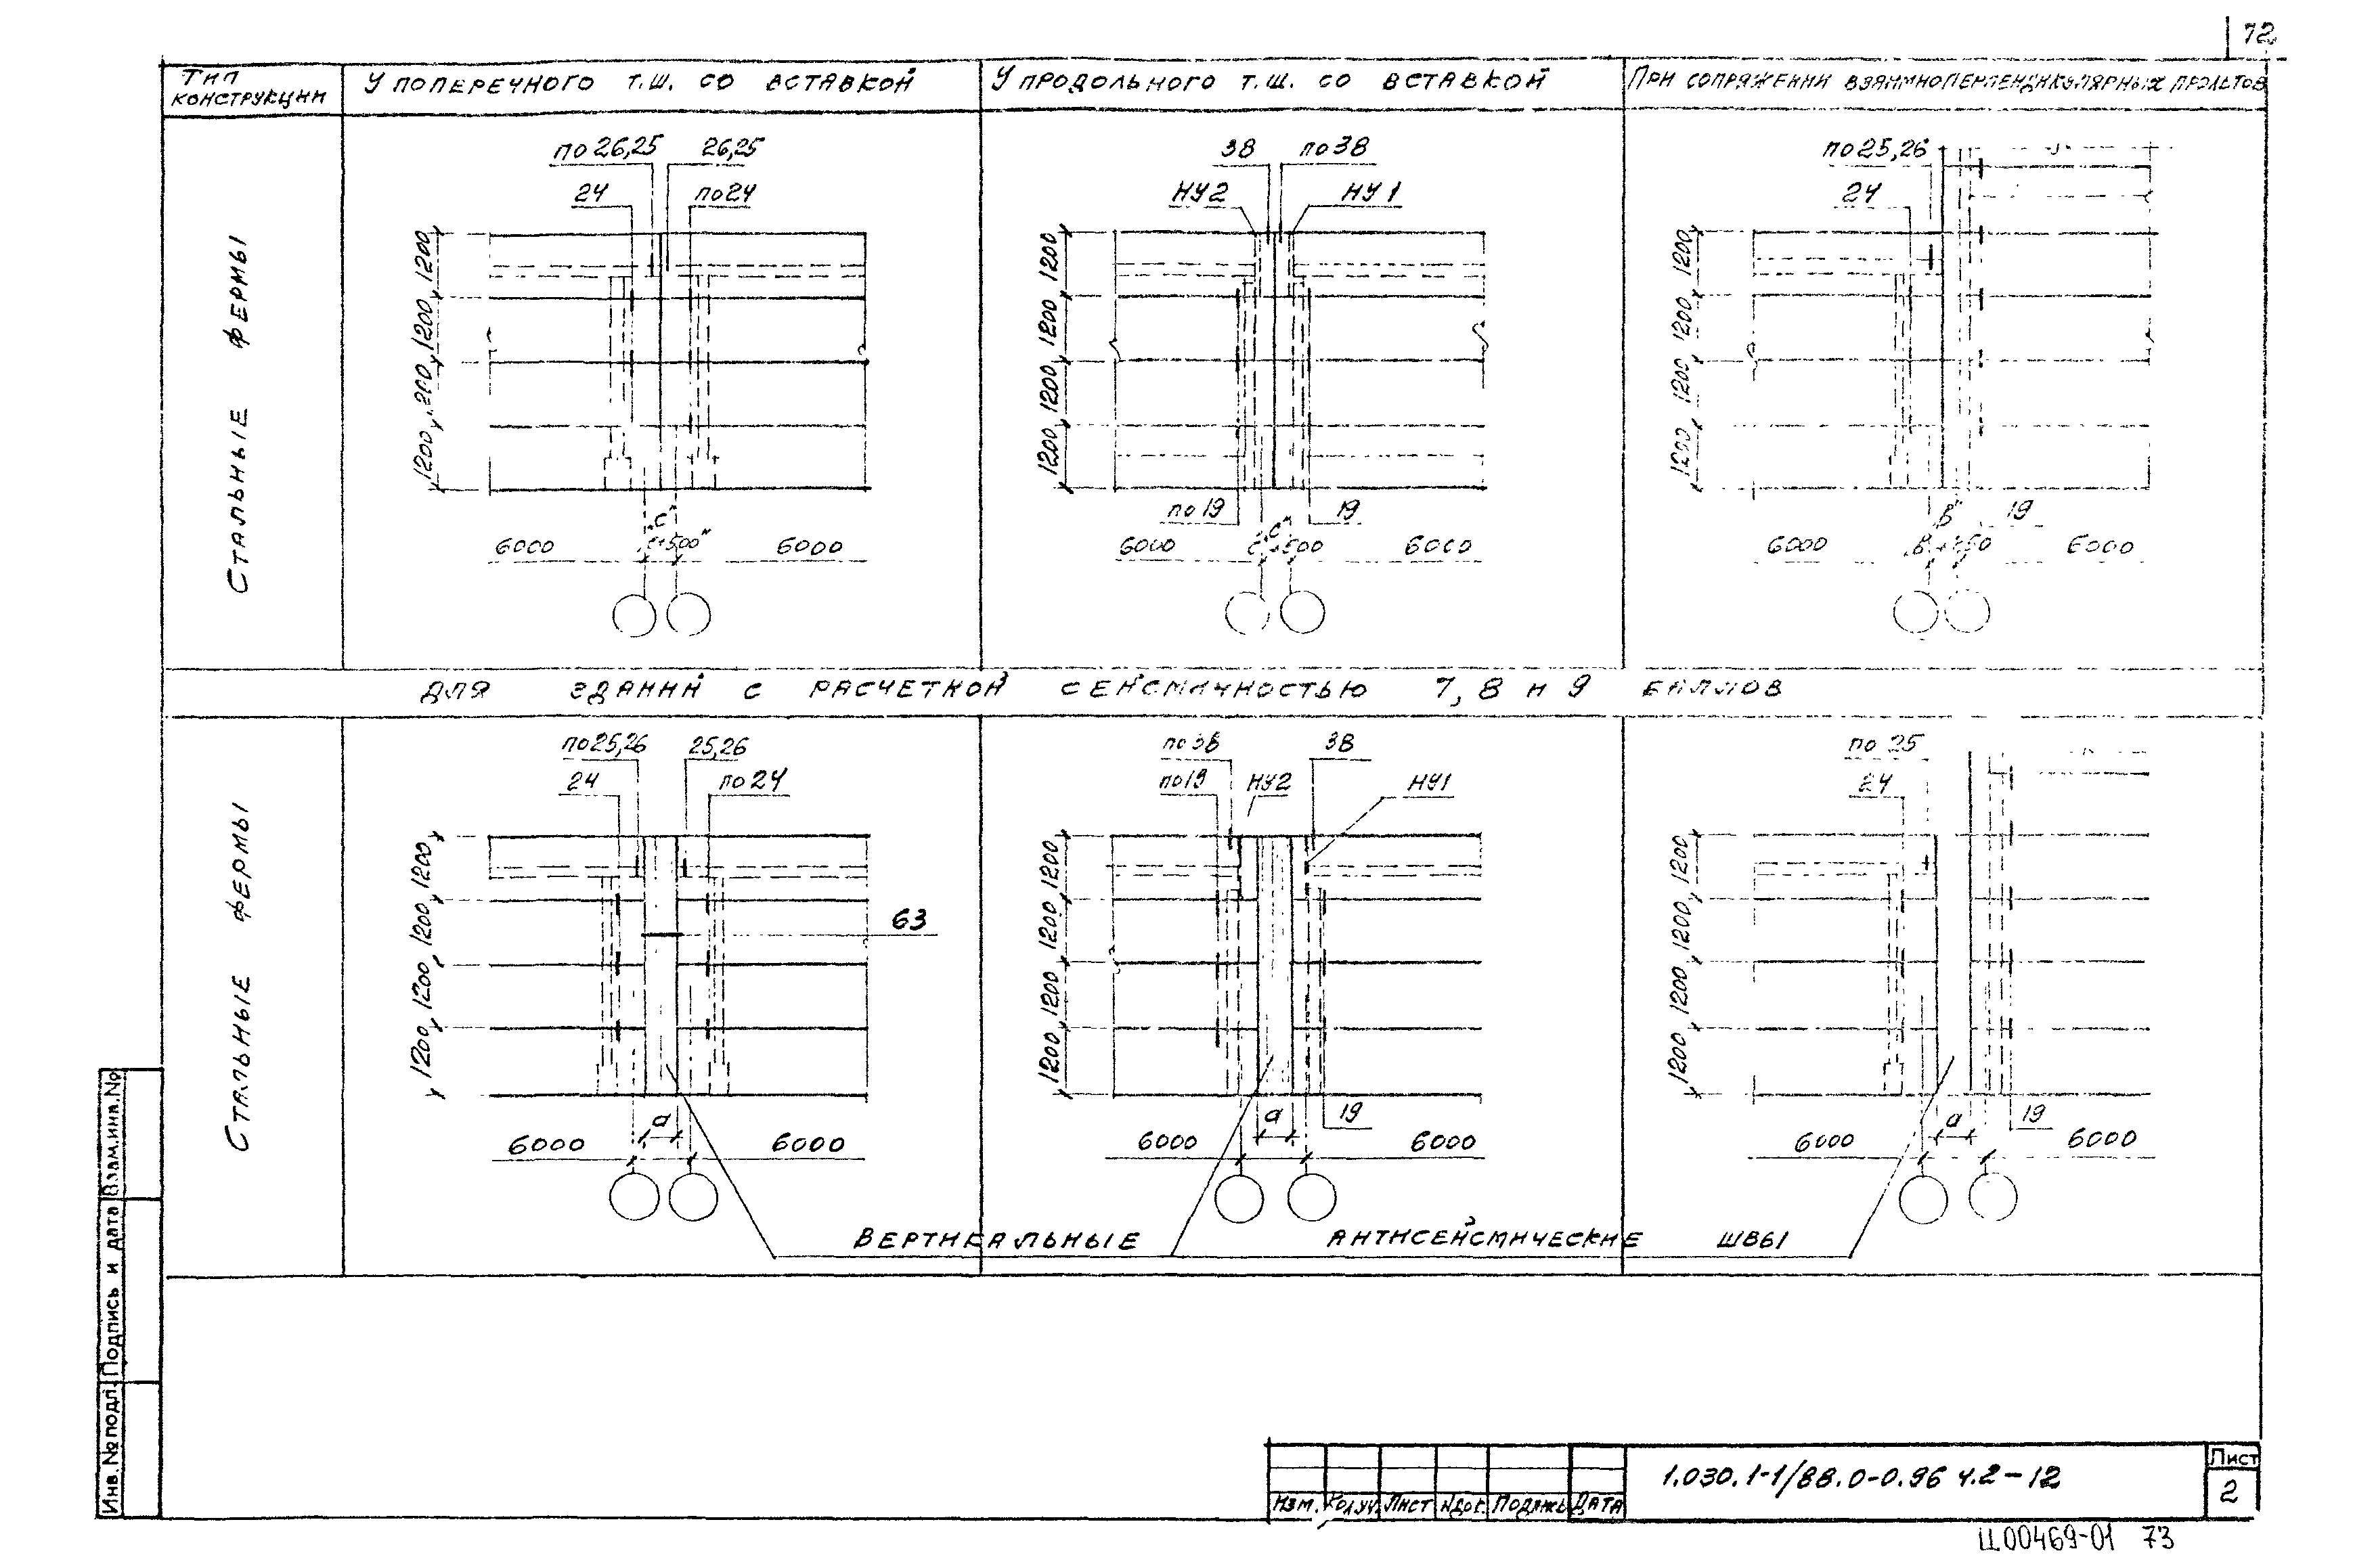 72
Тип конструкции
У поперечного т.ш. со вставкой
У продольного т.ш. со вставкой
При сопряжении взаимноперпендикулярных пролетов
Стальные фермы
по 26,25
26,25
24
по 24
1200
1200
1200
1200
"С"
6000
6000
38
по 38
НУ2
НУ1
1200
1200
1200
1200
по 19
19
"С"
6000
6000
по 25,26
24
1200
1200
1200
1200
19
6000
6000
Для зданий с расчетной сейсмичностью 7, 8 и 9 баллов
Стальные фермы
по 25,26
25,26
24
по 24
63
1200
1200
1200
1200
а
6000
6000
по 38
38
по 19
НУ2
НУ1
1200
1200
1200
1200
а
19
6000
6000
по 25
24
1200
1200
1200
1200
а
19
6000
6000
Вертикальные антисейсмические швы
Инв. № подл.
Подпись и дата
Взам.инв.№
Изм.
Кол.уч.
Лист
№док.
Подпись
Дата
1.030.1-1/88.0-0.96 ч.2-12
Лист
2
Ц00469-01 73